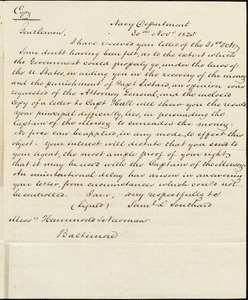 Copy
Navy Department
30th Nov 1825
Gentlemen,
I have received your letter of the 21st
Some doubt having been felt, as to the extent to which
the Government could properly go, under the laws of
the U. States, in aiding you in the recovery of the money
and the punishment of Capt an opinion was
requested of the Attorney General, and the enclosed
Copy of a letter to Capt Hull will shew you the result.
Your principal difficulty lies, in persuading the
Captain of the to surrender the money.
No force can be applied, in any mode, to effect this
object. Your interest will dictate that you send to
your Agent, the most ample proof of your right,
that it may be used with the Captain of the
An unintentional delay has arisen in answering
your letter, from circumstances which could not
be controlled. I am, very respectfully &c
(signed) Saml L Southard
Messrs Hammond & Newman
Baltimore